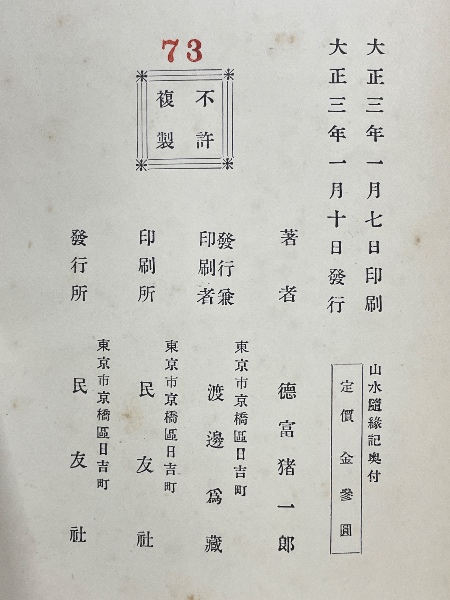 大正三年一月七日印刷
大正三年一月十日發行
山水隨緣記奧付
定價金參圓
73
不許
複製
著者
德富猪一郎
發行兼
印刷者
東京市京橋區日吉町
渡邊爲藏
印刷所
東京市京橋區日吉町
民友社
發行所
東京市京橋區日吉町
民友社